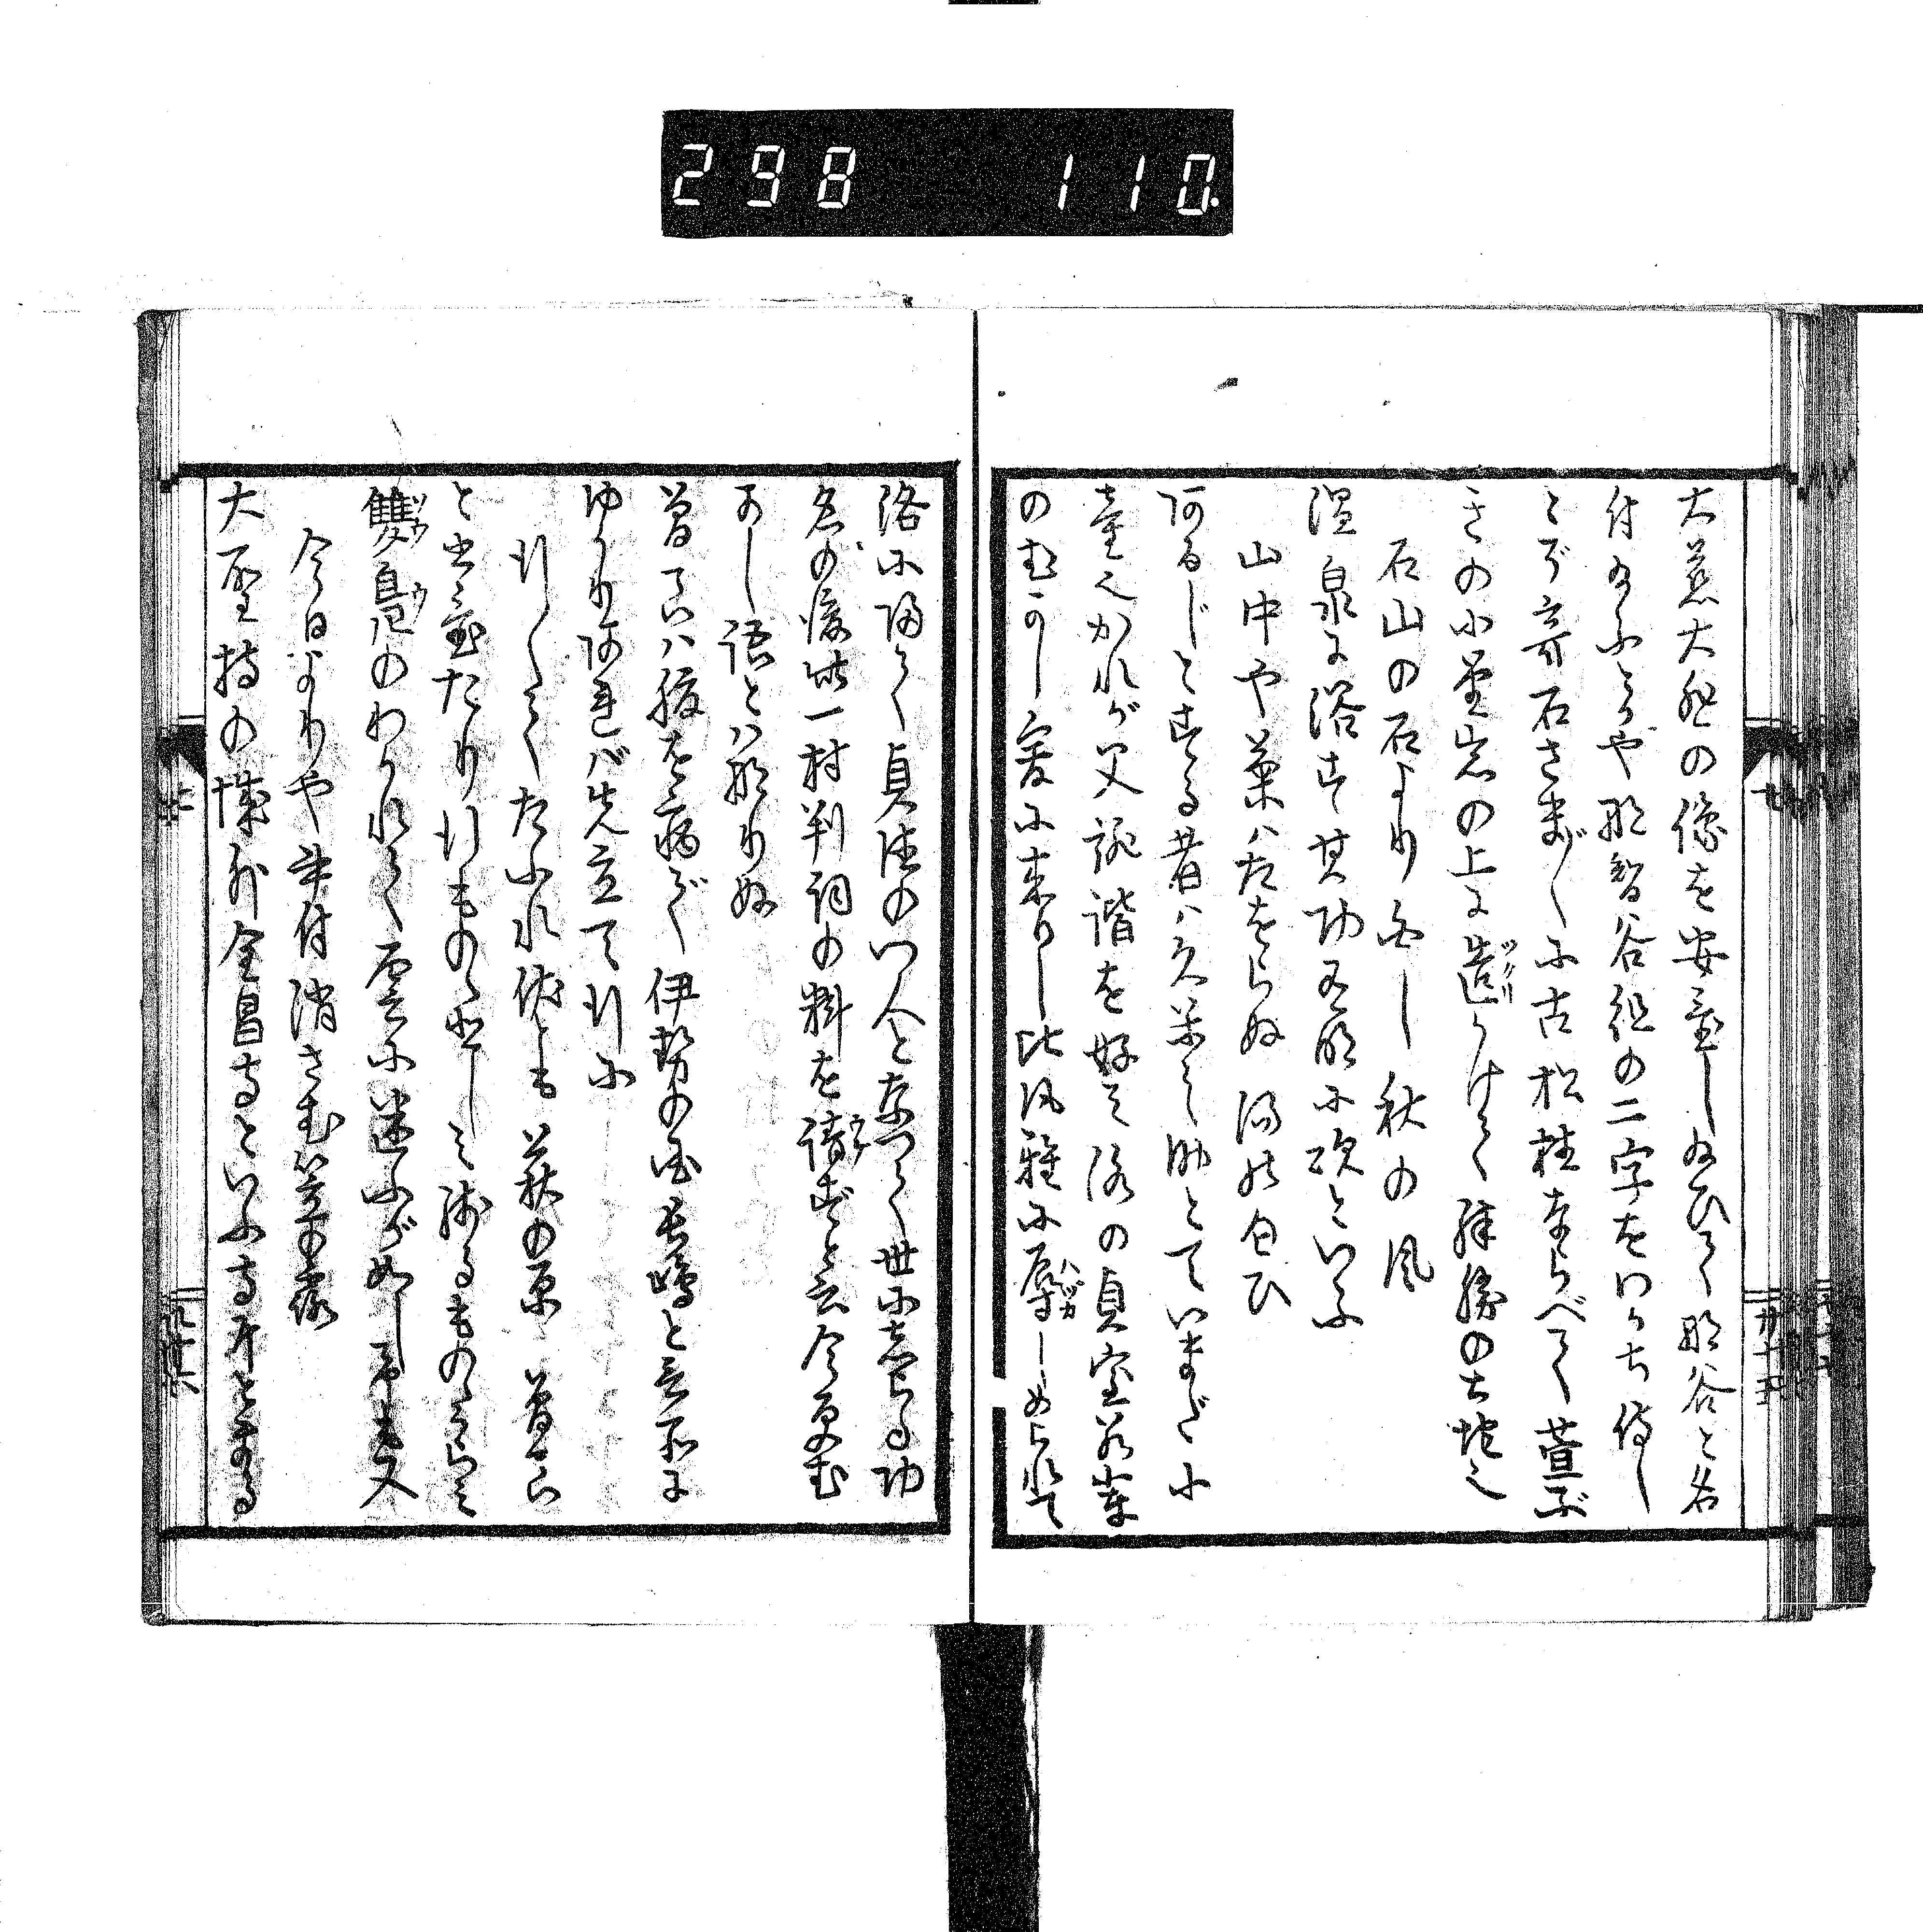 298 110.
大慈大悲の像を安置し給ひて那谷と名
付給ふとかや那智谷組の二字をわかち侍し
とぞ奇石さま〲に古松植ならべて萱ぶ
きの小堂岩の上に造りかけて殊勝の土地也
石山の石より白し秋の風
温泉に浴す其功有明に次といふ
山中や菊はたおらぬ湯の匂ひ
あるじとする者は久米之助とていまだ小
童也かれが父誹諧を好み洛の貞室若輩
のむかし爰に来りし比風雅に辱しめられて
洛に帰て貞徳の門人となつて世にしらる功
名の後此一村判詞の料を請ずと云今更む
かし語とは成りぬ
曽良は腹を病て伊勢の国長嶋と云所に
ゆかりあれば先立て行に
行〱てたふれ伏とも萩の原 曽良
と書置たり行ものゝ悲しみ残るものゝうらみ
雙鳧のわかれて雲に迷ふが如し予も又
今日よりや書付消さむ笠の露
大聖持の城外全昌寺といふ寺にとまる